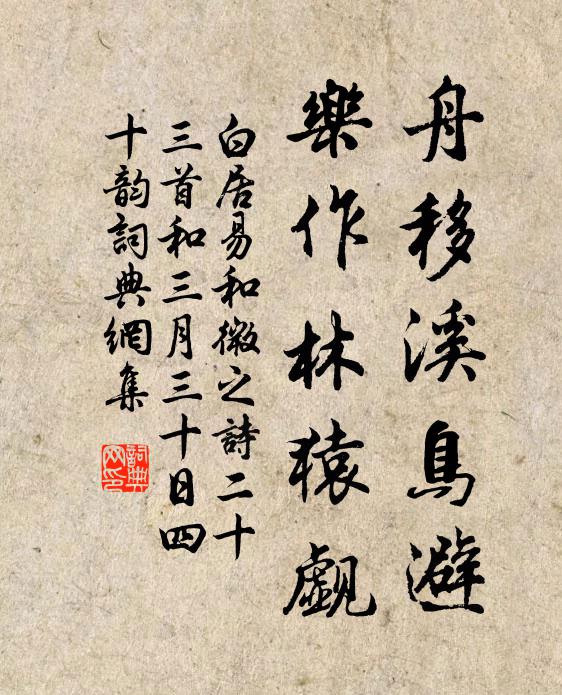 舟移溪鳥避
樂作林猿覷
白居易和微之詩二十
三首和三月三十日四
十韵詞典網集
詞典
网印